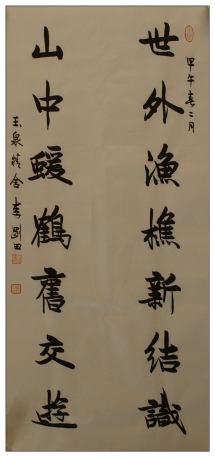 甲午春二月
世外漁樵新結識
山中蝯鶴舊交遊
玉泉精舍李剛田